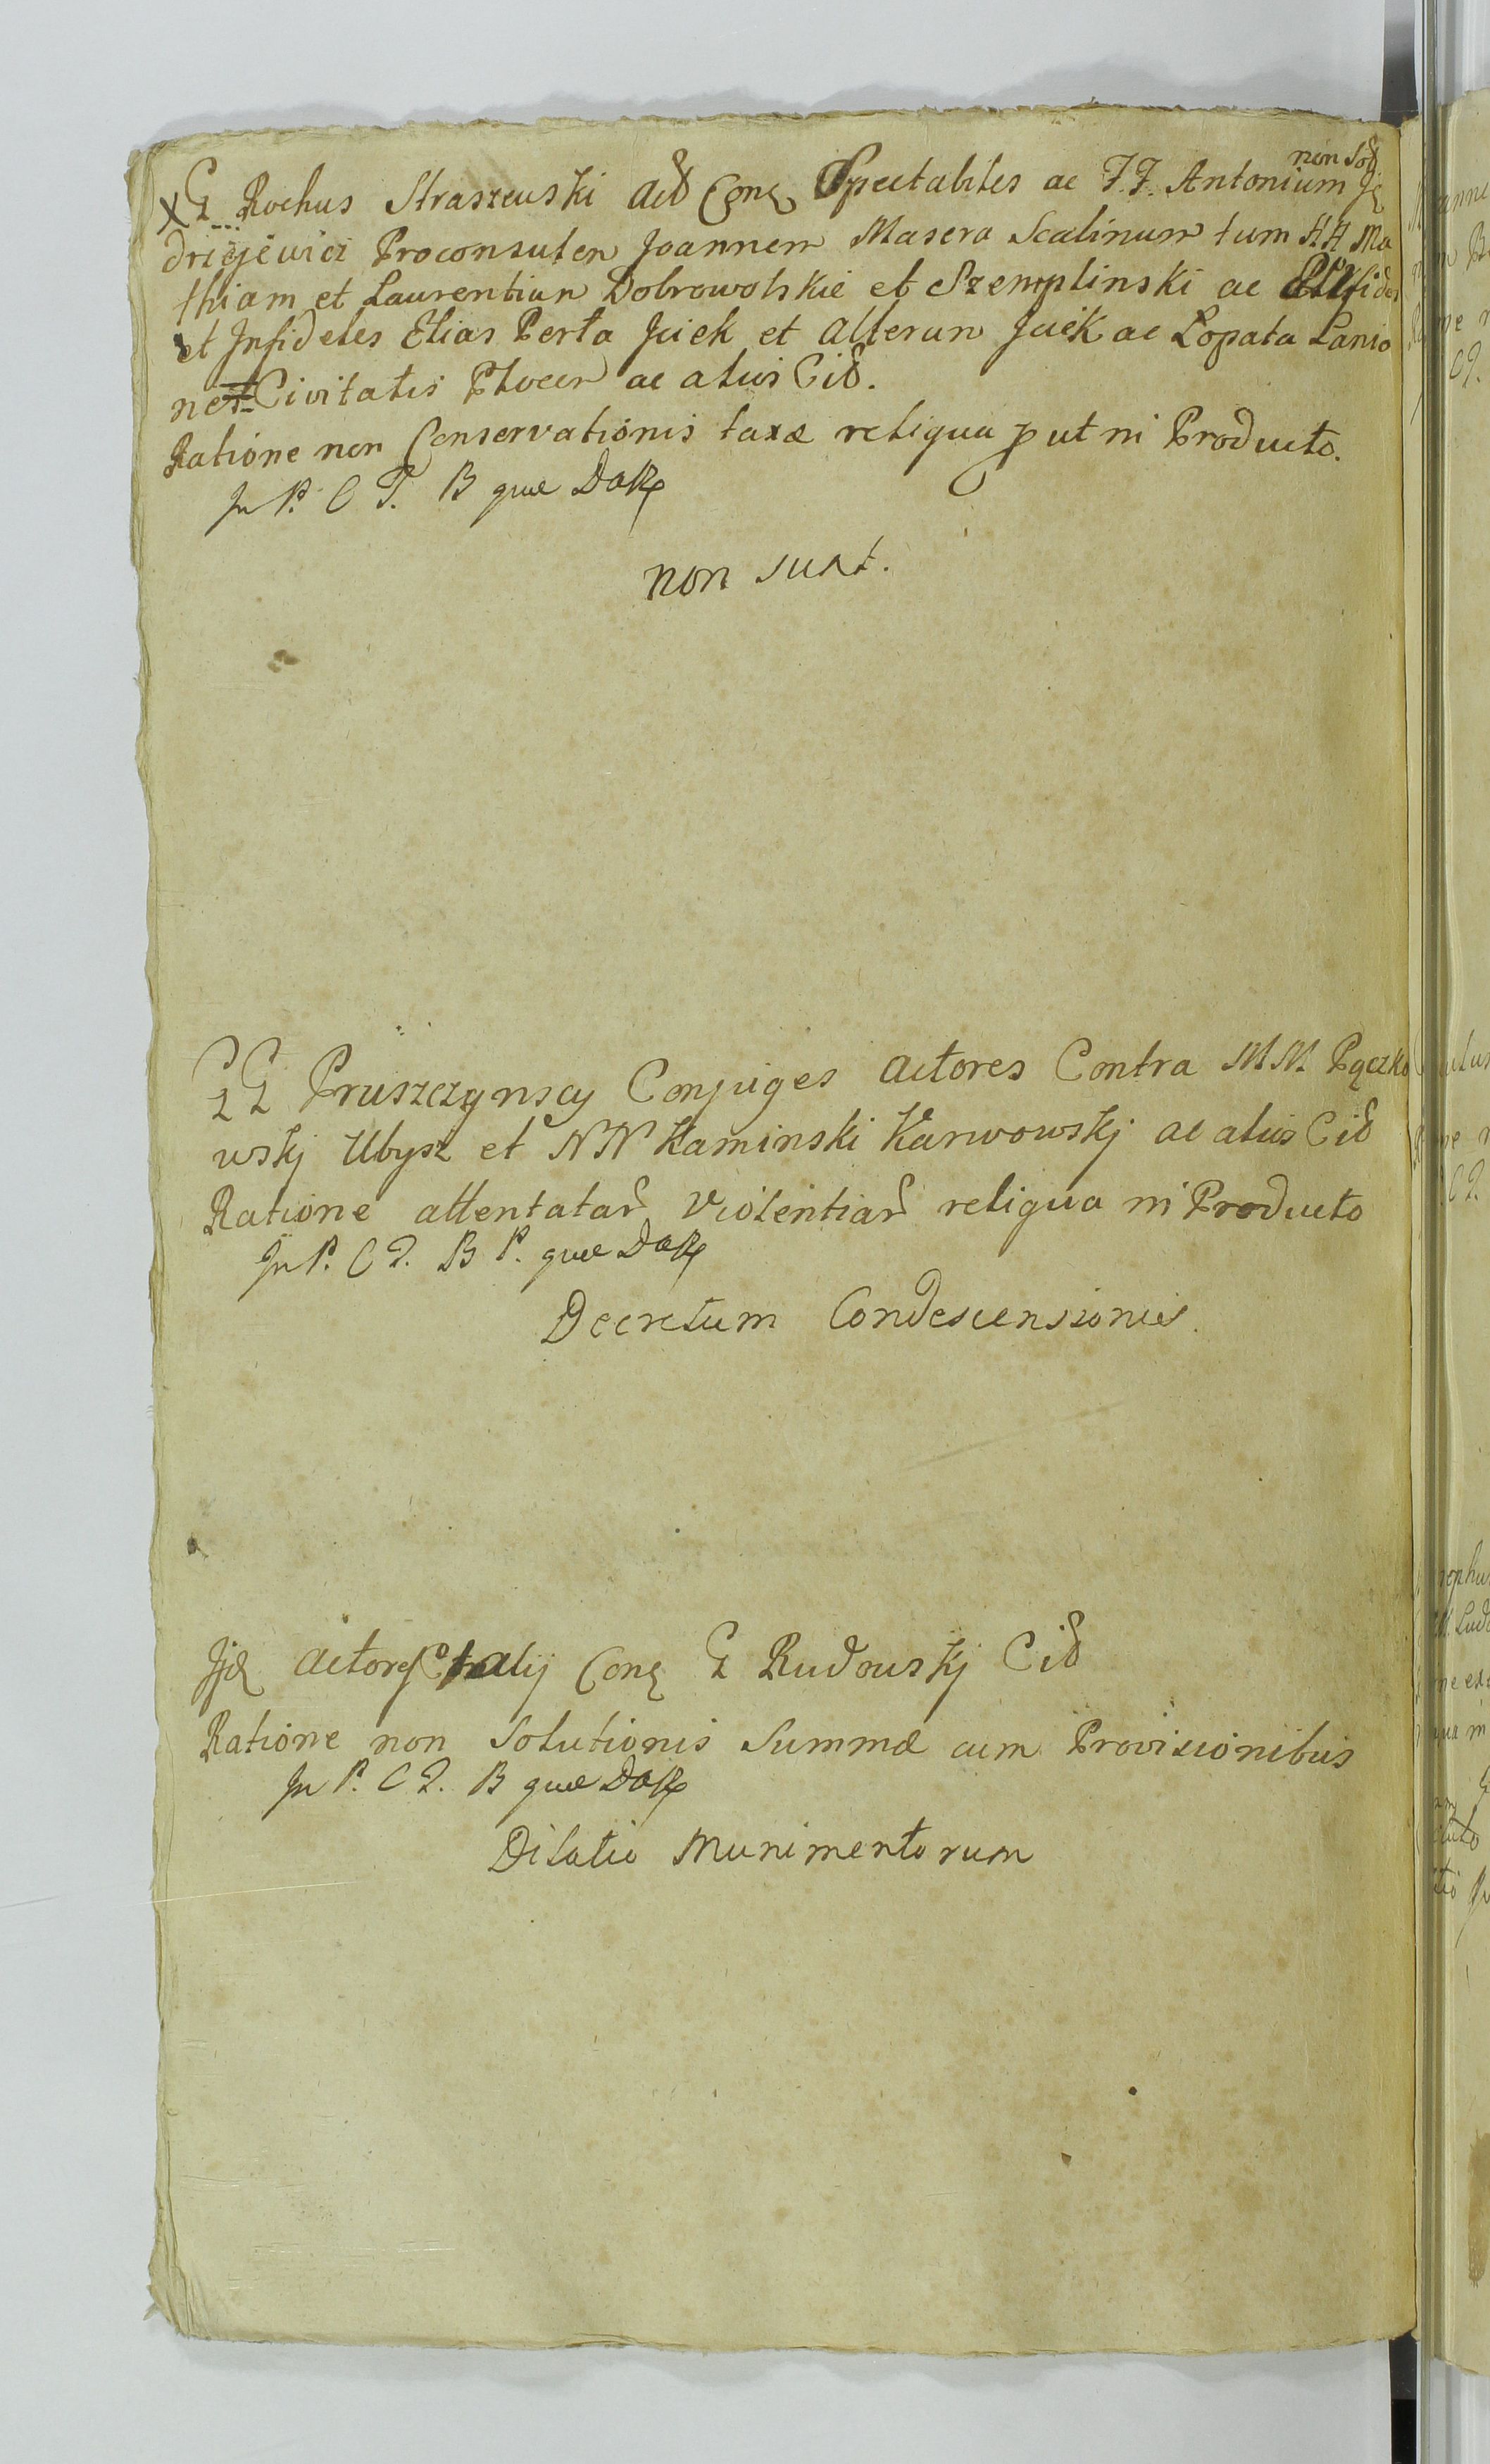 non sol
X G Rochus Straszewski Act Con Spectabiles ac FF. Antonium Ję
drzejewicz Proconsulem Joannem Masera Scabinum tum HH Ma
thiam et Laurentium Dobrowolskie et Szemplinski ac
et Infideles Elias Perła Jcick et Alterum Jcick ac Łopata Lanio
nes Civitatis Plocen ac alios Cit.
Ratione non Conservationis taxæ reliqua put in Producto.
In P. C T. B quæ
non sunt.
GG Pruszczynscy Conjuges Actores Contra MM Pączko
wskj Ubysz et NN Kaminski Karwowskj ac alios Cit
Ratione attentatar Violentiar reliqua in Producto
In P. C T. B P. quæ
Decretum Condescensionis.
Actores alij Con G Rudowskj Cit
Ratione non Solutionis Summæ cum Provisionibus
In P. C T. B quæ
Dilatio Munimentorum